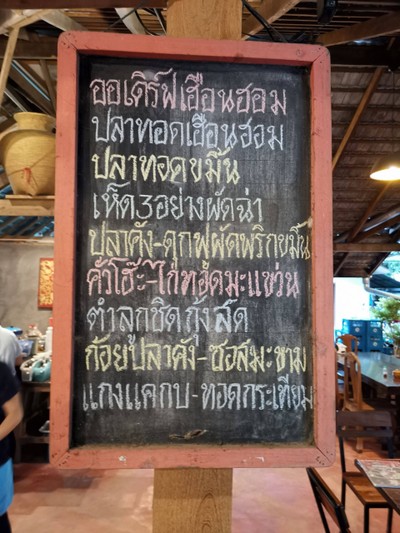 ออเดิร์ฟเฮือนฮอม
ปลาทอดเฮือนฮอม
ปลาทอดขมิ้น
เห็ด3อย่างผัดฉ่า
ปลาคัง-ดุกฟูผัดพริกขมิ้น
คั่วโฮ๊ะ-ไก่ทอดมะแขว่น
ตำลูกชิดกุ้งสด
ก้อยปลาคัง-ซอสมะขาม
แกงแคกบ-ทอดกระเทียม